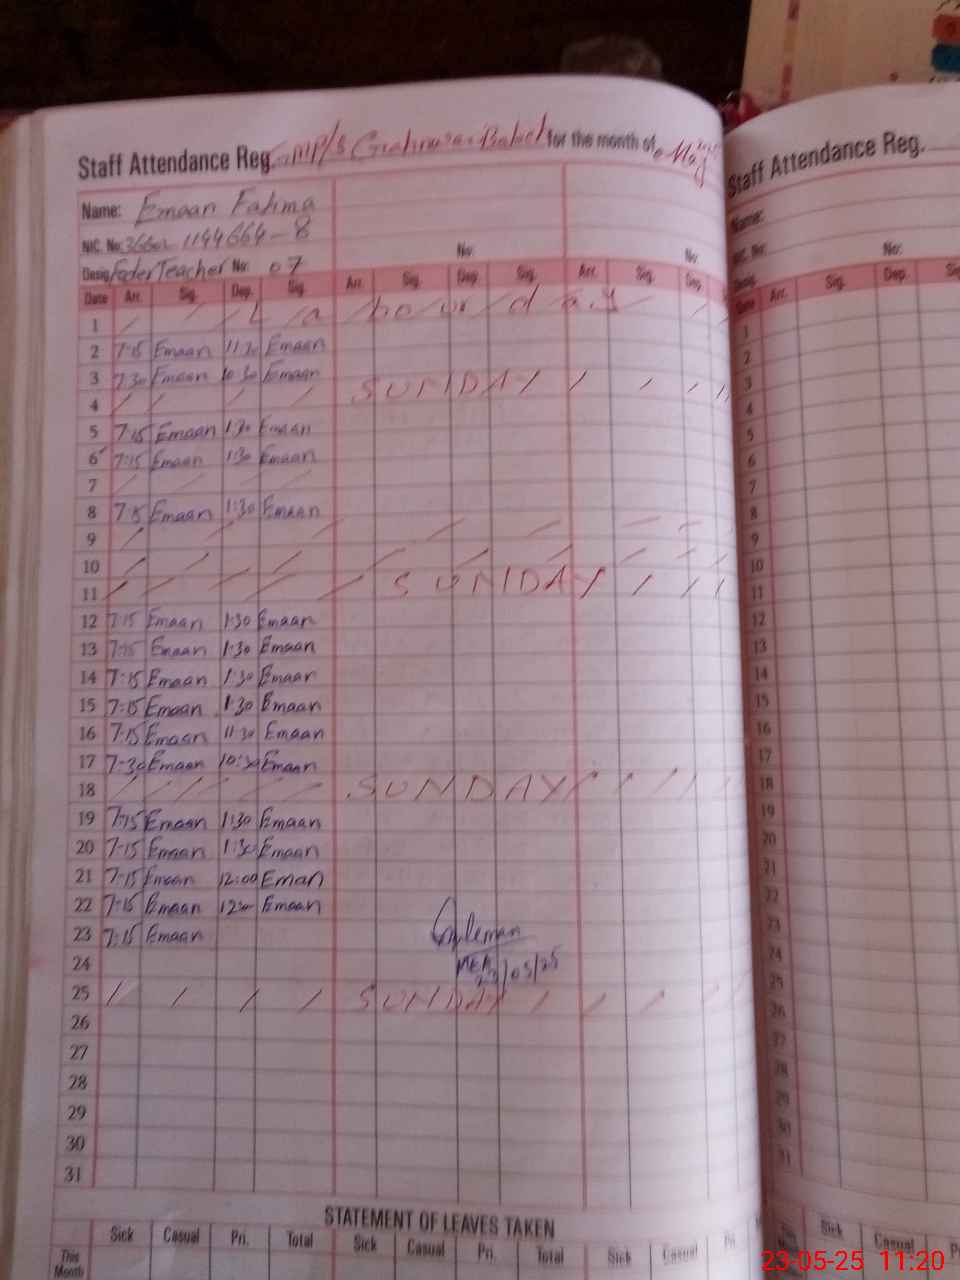 Staff Attendance Reg. GMP/S for the month of May
Name: Emaan Fatima
NIC. No: 1144664-8
Desig Teacher No: 07 No: No:
Date Arr. Sig. Dep. Sig. Arr. Sig. Dep. Sig. Arr. Sig. Dep.
1 L a bo ur d a y
2 7:15 Emaan 11:30 Emaan
3 7:30 Emaan 10:30 Emaan
4 SUNDAY
5 7:15 Emaan 1:30 Emaan
6 7:15 Emaan 1:30 Emaan
7
8 7:15 Emaan 1:30 Emaan
9
10
11 SUNDAY
12 7:15 Emaan 1:30 Emaan
13 7:15 Emaan 1:30 Emaan
14 7:15 Emaan 1:30 Emaan
15 7:15 Emaan 1:30 Emaan
16 7:15 Emaan 11:30 Emaan
17 7:30 Emaan 10:30 Emaan
18 SUNDAY
19 7:15 Emaan 1:30 Emaan
20 7:15 Emaan 1:30 Emaan
21 7:15 Emaan 12:00 Eman
22 7:15 Emaan Emaan
23 7:15 Emaan
24 MEA 23/05/25
25 SUNDAY
26
27
28
29
30
31
STATEMENT OF LEAVES TAKEN
Sick Casual Pri. Total Sick Casual Pri. Total Sick Casual Pri.
This Month
Staff Attendance Reg.
Name:
NIC. No:
No:
Date Arr. Sig. Dep.
1
2
3
4
5
6
7
8
9
10
11
12
13
14
15
16
17
18
19
20
21
22
23
24
25
26
27
28
29
30
31
Sick Casual
23-05-25 11:20